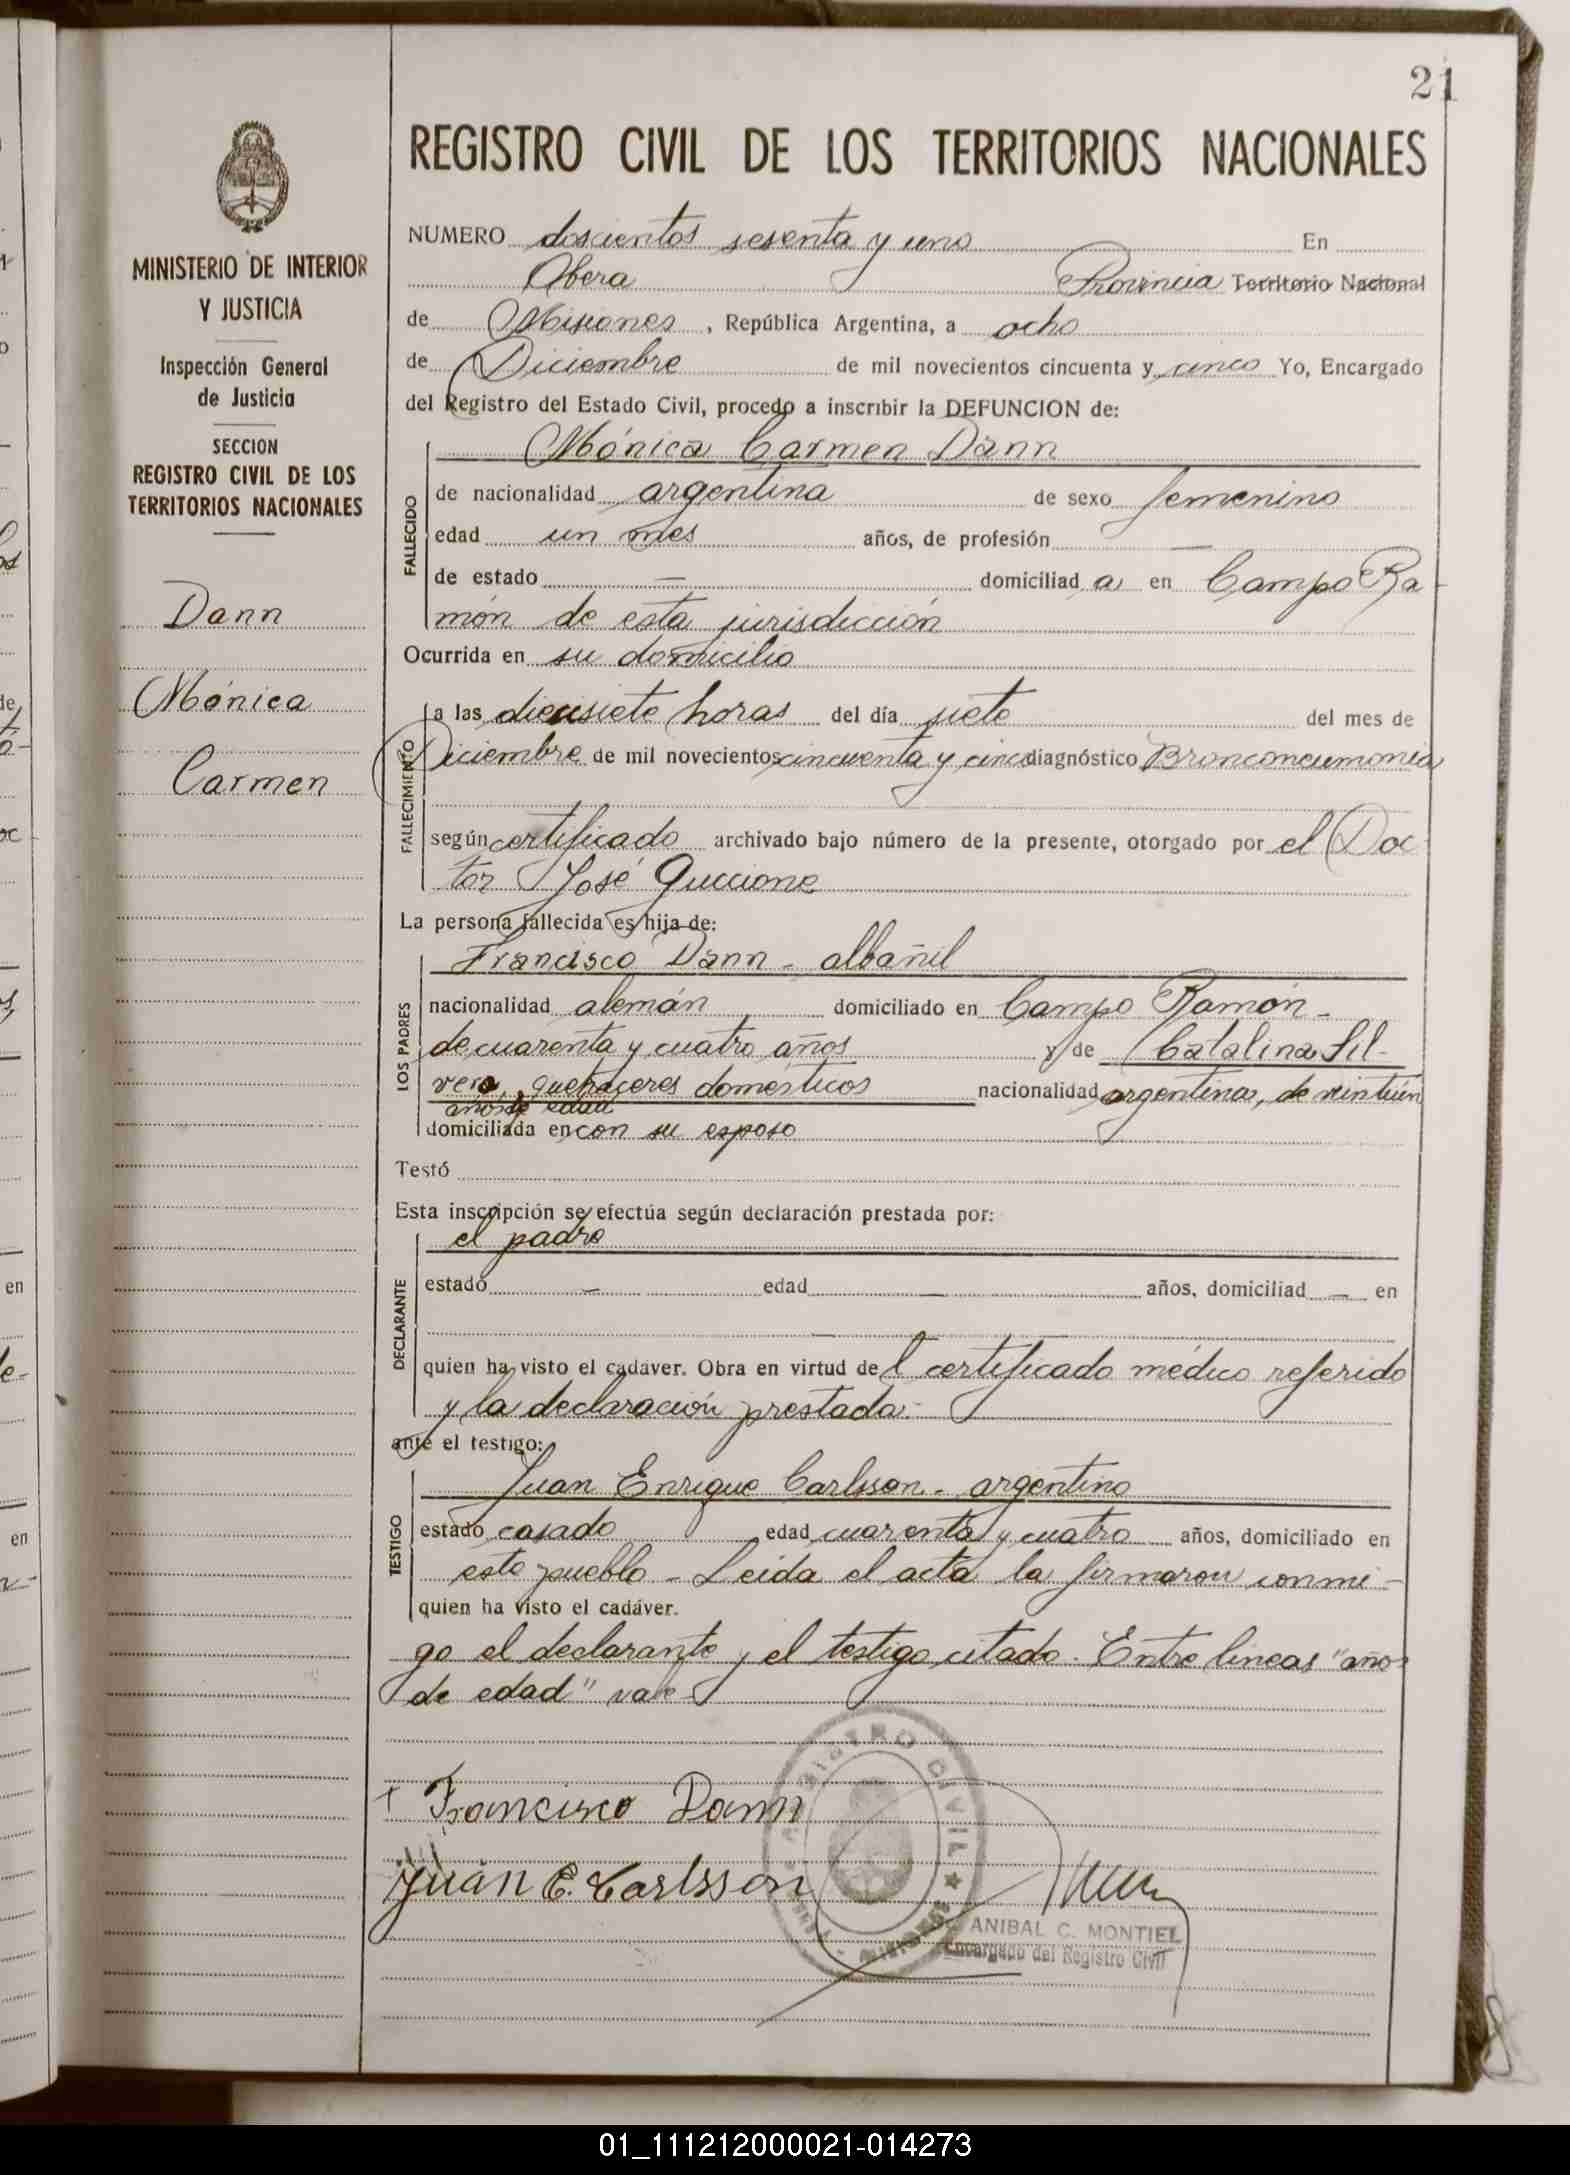 21
REGISTRO CIVIL DE LOS TERRITORIOS NACIONALES
MINISTERIO DE INTERIOR
Y JUSTICIA
Inspección General
de Justicia
SECCION
REGISTRO CIVIL DE LOS
TERRITORIOS NACIONALES
Dann
Mónica
Carmen
NUMERO doscientos sesenta y uno En
Obera Provincia Territorio Nacional
de Misiones, República Argentina, a ocho
de Diciembre de mil novecientos cincuenta y cinco Yo, Encargado
del Registro del Estado Civil, procedo a inscribir la DEFUNCION de:
FALLECIDO
Mónica Carmen Dann
de nacionalidad argentina de sexo femenino
edad un mes años, de profesión —
de estado — domiciliad a en Campo Ra-
món de esta jurisdicción
Ocurrida en su domicilio
FALLECIMIENTO
a las diecisiete horas del día siete del mes de
Diciembre de mil novecientos cincuenta y cinco diagnóstico Bronconeumonia
según certificado archivado bajo número de la presente, otorgado por el Doc-
tor José Guccione
La persona fallecida es hija de:
LOS PADRES
Francisco Dann - albañil
nacionalidad alemán domiciliado en Campo Ramón -
de cuarenta y cuatro años y de Catalina Sil-
vero, quehaceres domésticos nacionalidad argentina, de veintiún
años de edad
domiciliada en con su esposo
Testó
Esta inscripción se efectúa según declaración prestada por:
DECLARANTE
el padre
estado — edad — años, domiciliad — en
—
quien ha visto el cadáver. Obra en virtud del certificado médico referido
y la declaración prestada.-
ante el testigo:
TESTIGO
Juan Enrique Carlsson - argentino
estado casado edad cuarenta y cuatro años, domiciliado en
este pueblo - Leida el acta la firmaron conmi-
quien ha visto el cadáver.
go el declarante y el testigo citado. Entre lineas "años
de edad" vale-
Francisco Dann
Juan E. Carlsson
REGISTRO CIVIL
MISIONES
ANIBAL C. MONTIEL
Encargado del Registro Civil
01_111212000021-014273